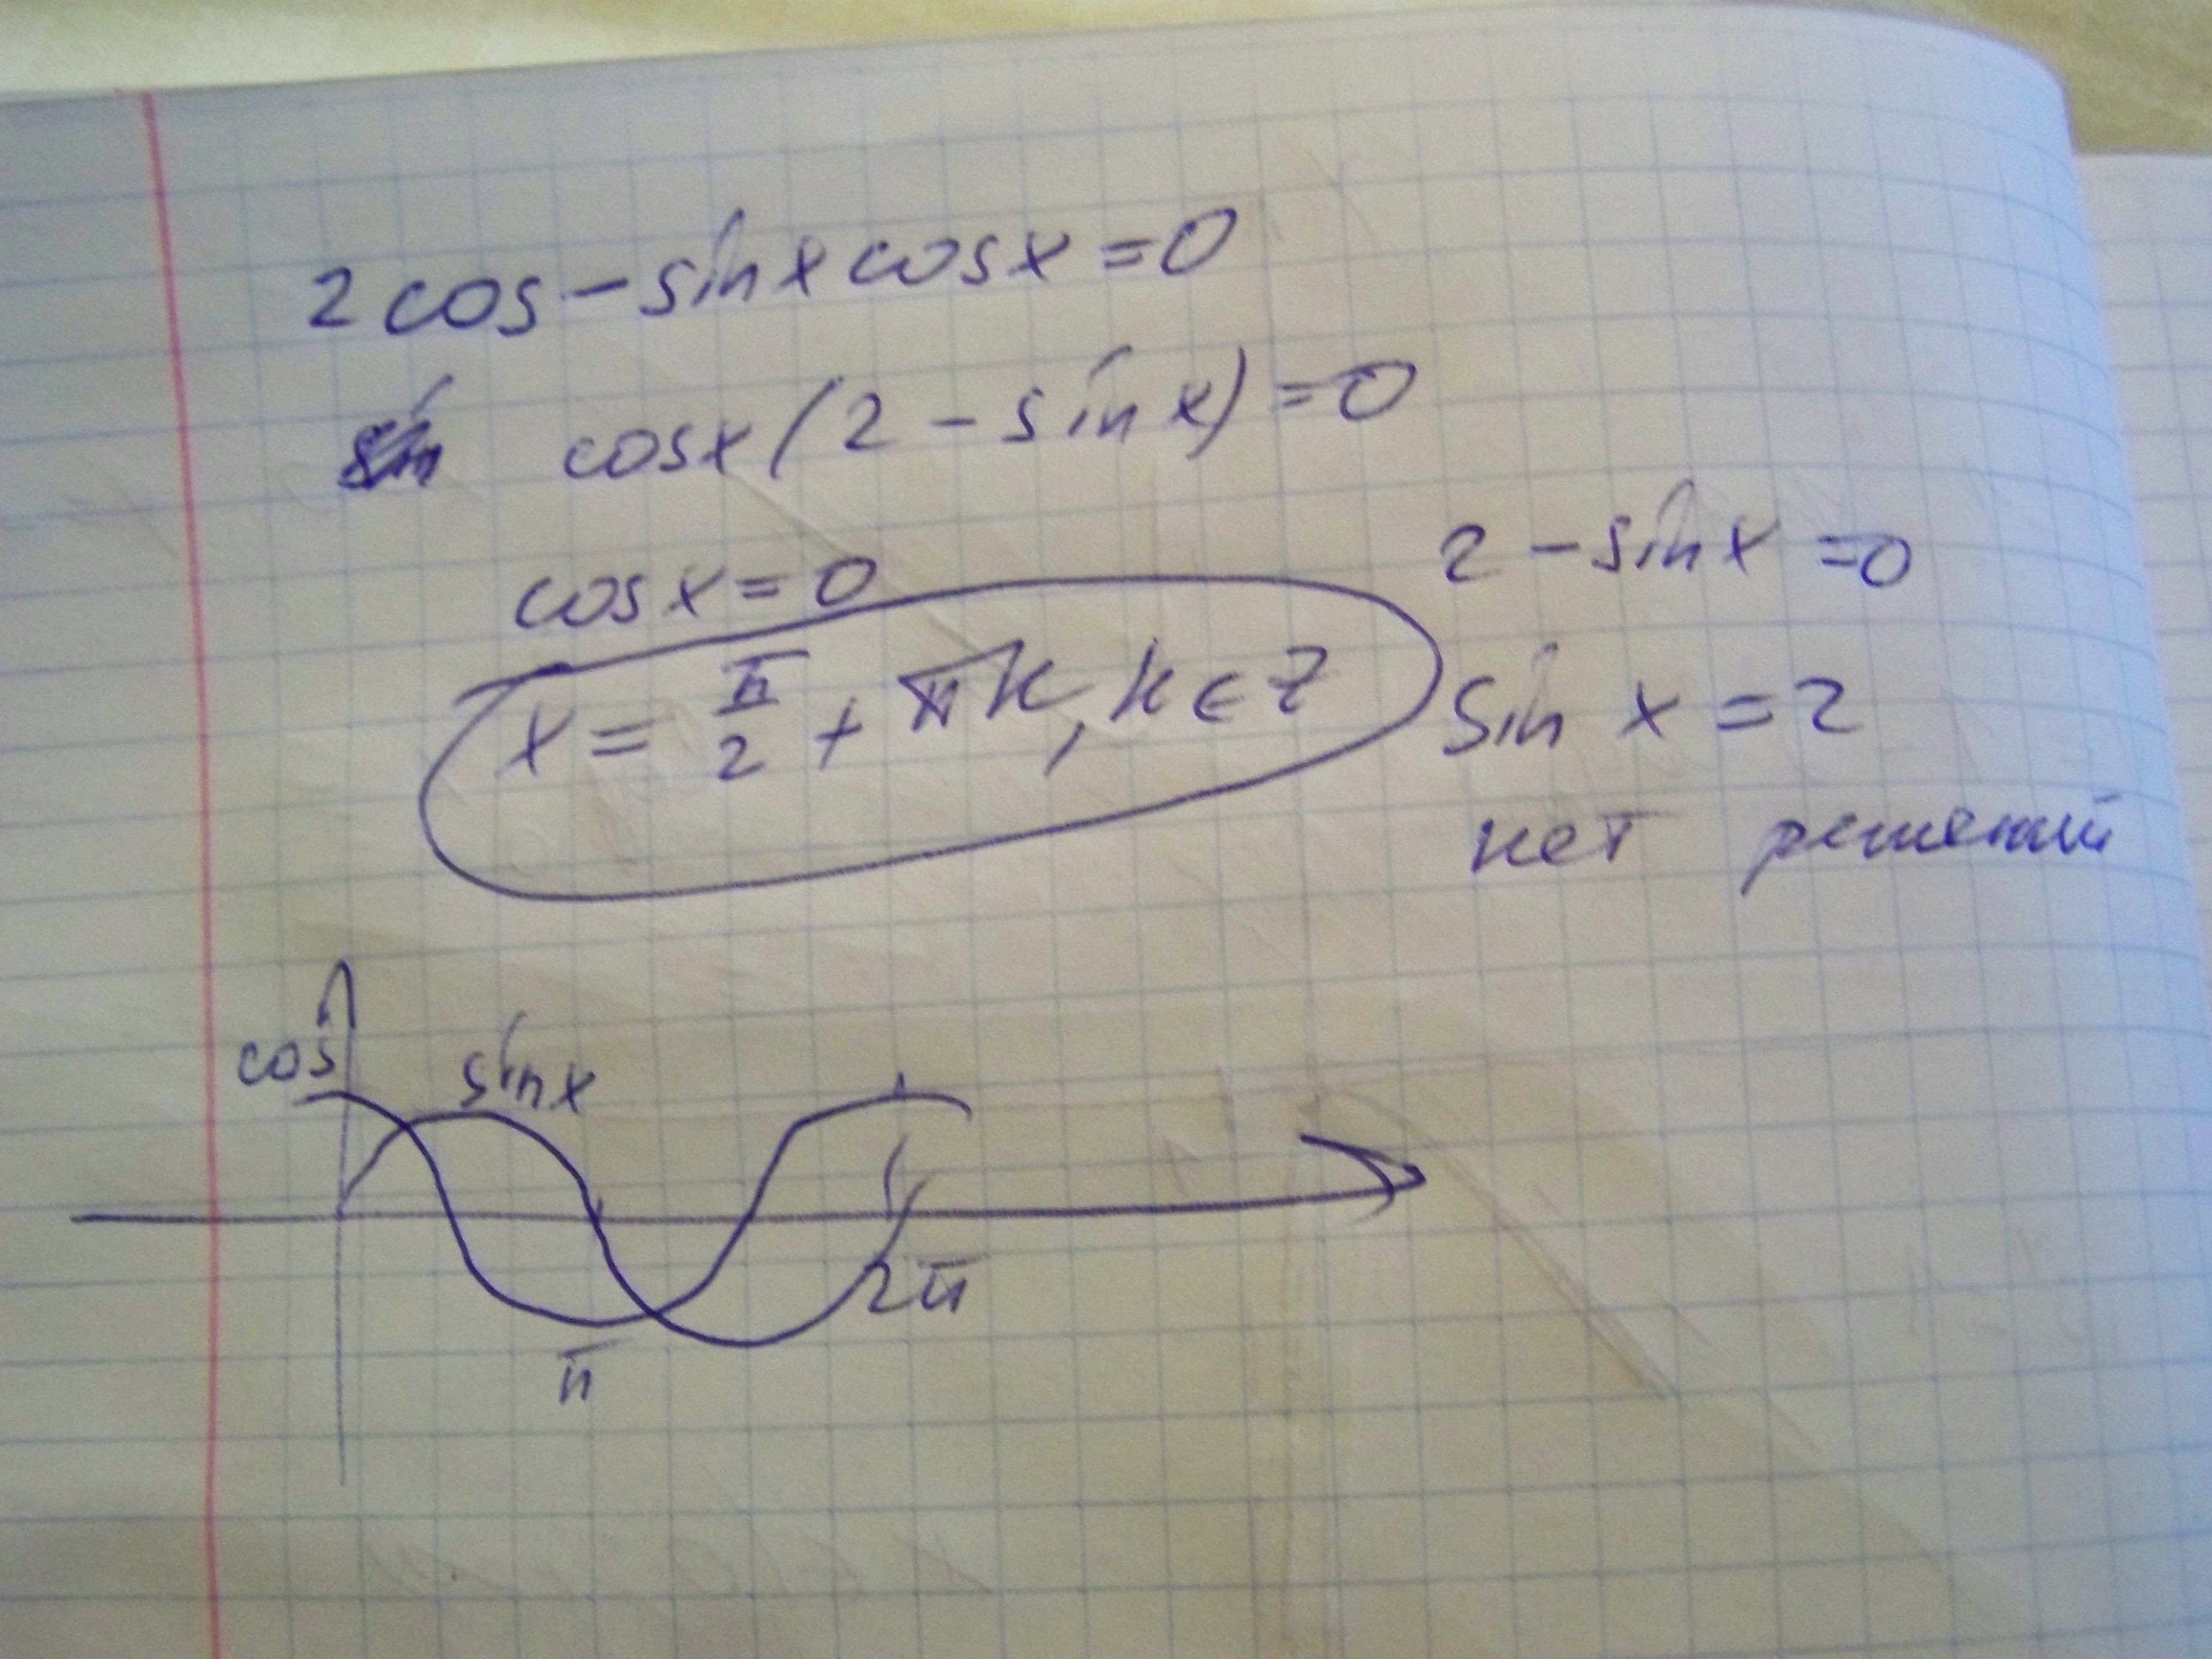 2 cos - sin x cos x = 0
cos x (2 - sin x) = 0
cos x = 0
x = π/2 + πk, k ∈ Z
2 - sin x = 0
sin x = 2
нет решений
cos
sin x
π
2π